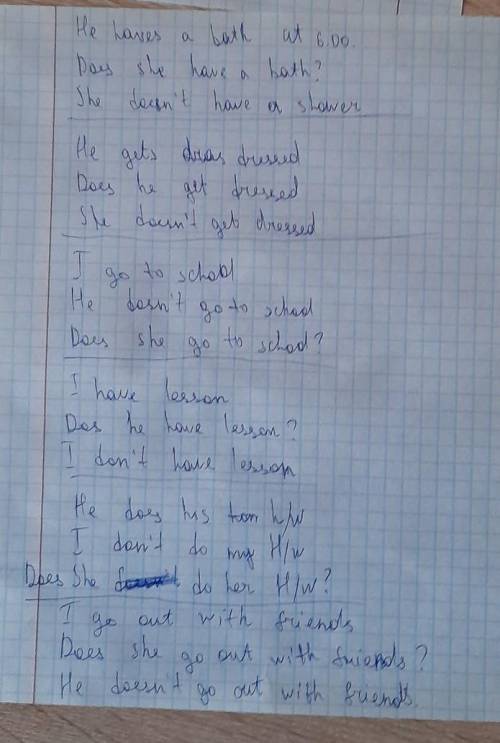 He haves a bath at 6.00.
Does she have a bath?
She doesn't have a shower
He gets dressed
Does he get dressed
She doesn't get dressed
I go to school
He dosn't go to school
Does she go to school?
I have lesson
Dos he have lesson?
I don't have lesson
He does his h/w
I don't do my H/w
Does She do her H/w?
I go out with friends
Does she go out with friends?
He doesn't go out with friends.